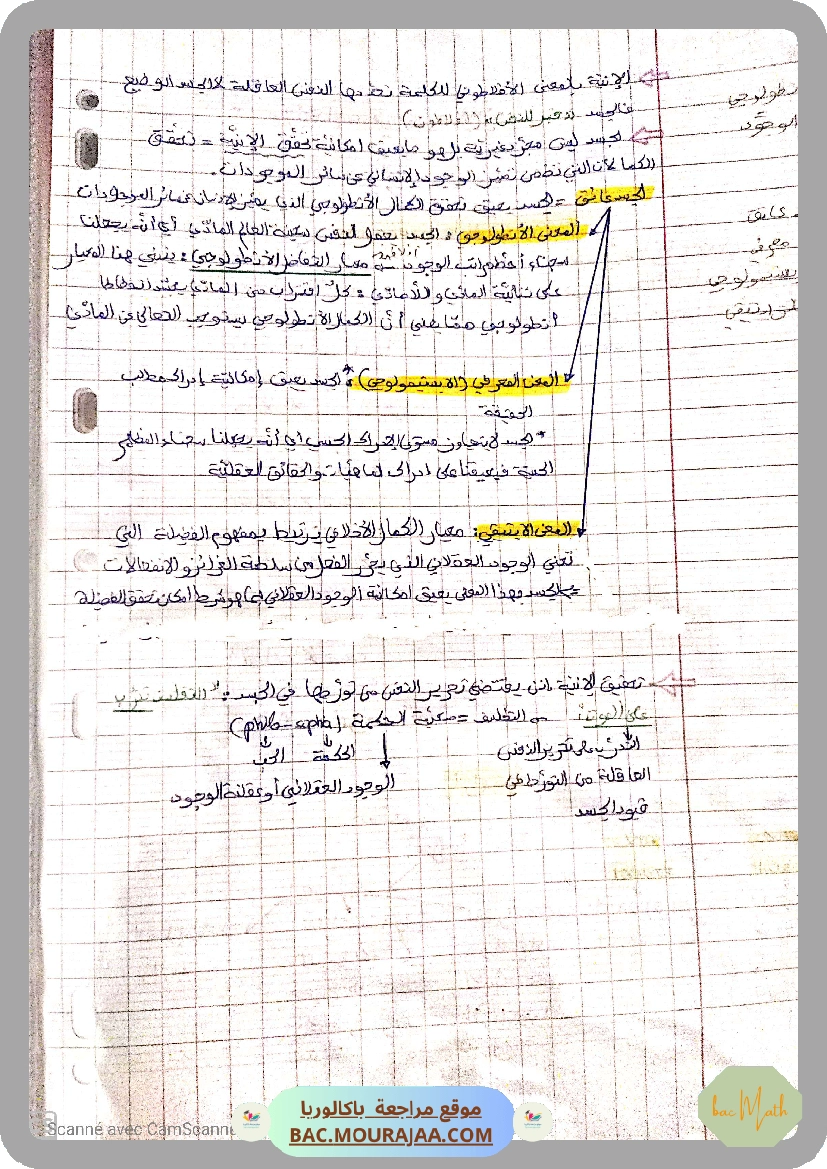 الإنيّة بالمعنى الأفلاطوني للكلمة نقصد بها النفس العاقلة لا الجسد الوضيع
فالجسد " قبر للنفس" (أفلاطون)
الجسد ليس مجرّد غيرية بل هو ما يعيق إمكانية تحقّق الإنيّة = تحقّق
الكمالات التي تضمن تميّز الوجود الإنساني عن سائر الموجودات.
الجسد عائق = الجسد يعيق تحقق الكمال الأنطولوجي الذي يميّز الإنسان عن سائر الموجودات
المعنى الأنطولوجي : الجسد يجعل النفس سجينة العالم المادّي أي أنّه يجعلنا
سجناء أحطّ مراتب الوجود معيار التفاضل الأنطولوجي : ينبني هذا المعيار
على ثنائيّة المادّي واللاّمادّي : كلّ اقتراب من المادّي يعتبر انحطاطا
أنطولوجي ممّا يعني أنّ الكمال الأنطولوجي يستوجب التعالي عن المادّي
المعنى المعرفي (الابستيمولوجي) : * الجسد يعيق إمكانيّة إدراك مطالب
الحقيقة
* الجسد لا يتجاوز مستوى الإدراك الحسي أي أنّه يجعلنا سجناء المظاهر
الحسيّة فيعيقنا على إدراك الماهيّات والحقائق العقليّة
المعنى الايتيقي : معيار الكمال الأخلاقي يرتبط بمفهوم الفضيلة التي
تعني الوجود العقلاني الذي يحرّر الفعل من سلطة الغرائز والانفعالات
=> الجسد بهذا المعنى يعيق إمكانية الوجود العقلاني بما هو شرط إمكان تحقق الفضيلة
تحقيق الإنيّة إذن يقتضي تحرير النفس من تورّطها في الجسد : " التفلسف تدرّب
على الموت" التفلسف = محبّة الحكمة (philo-sophia)
التدرّب على تحرير النفس الحكمة الحبّ
العاقلة من التورّط في الوجود العقلاني أو عقلنة الوجود
قيود الجسد
أنطولوجي
الوجود
عائق
معرفي
ابستيمولوجي
Scanné avec CamScanner
موقع مراجعة باكالوريا
BAC.MOURAJAA.COM
bac Math